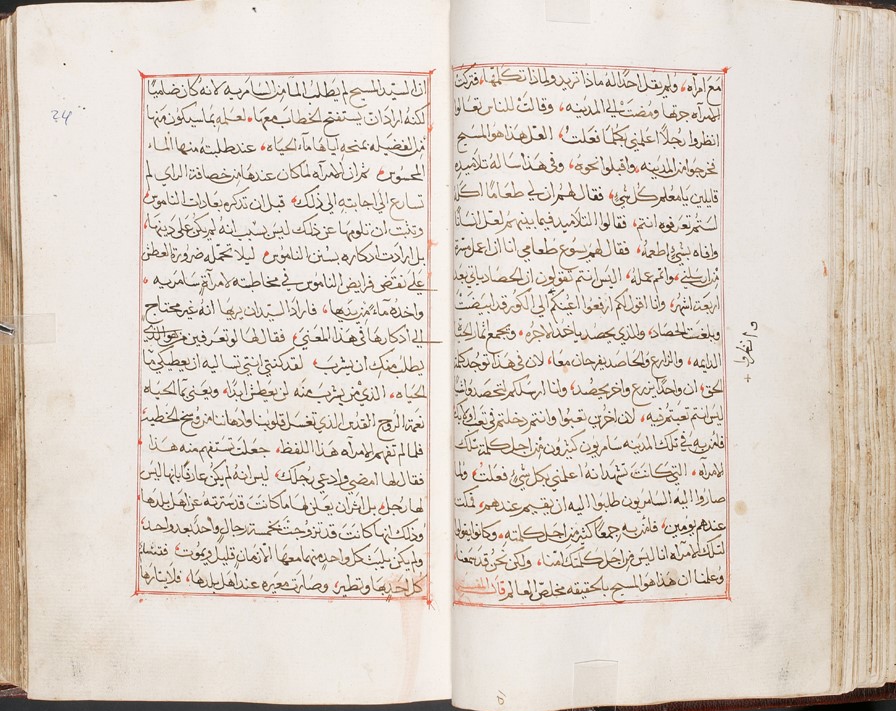 مع امراه، ولم يقل احد له ماذا تريد ولماذا تكلمها، فتركت
المراه جرتها ومضت الي المدينه، وقالت للناس تعالوا
انظروا رجلا اعلمني كلما فعلت، العل هذا هو المسيح
فخرجوا من المدينه واقبلوا نحوه، وفي هذا ساله تلاميذه
قايلين يا معلم كل شي، فقال لهم ان لي طعاما اكله
لستم تعرفوه انتم، فقالوا التلاميذ فيما بينهم لعل انسان
وافاه بشي اطعمه، فقال لهم يسوع طعامي انا ان اعمل مسرة
من ارسلني واتم عمله، اليس انتم تقولون ان الحصاد ياتي بعد
اربعة اشهر، وانا اقول لكم ارفعوا اعينكم الي الكور قد ابيضت
وبلغت الحصاد، والذي يحصد ياخذ الاجره، ويجمع ثمار الحياة
الدايمه، والزارع والحاصد يفرحان معا، لان في هذا توجد كلمة
الحق ان واحدا يزرع واخر يحصد، وانا ارسلتكم لتحصدوا شيا
ليس انتم تعبتم فيه، لان اخرين تعبوا وانتم دخلتم في تعب اوليك
فامن به في تلك المدينه سامريون كثيرون من اجل كلمة تلك
الامراه، التي كانت تشهد انه اعلمني بكل شي فعلت، ولما
صاروا اليه السامريون طلبوا اليه ان يقيم عندهم، فمكث
عندهم يومين، فامن به جمعا كثيرا من اجل كلمته، وكانوا يقولوا
لتلك الامراه اننا ليس من اجل كلمتك امنا، ولكن نحن قد سمعنا
وعلمنا ان هذا هو المسيح بالحقيقه مخلص العالم قال المفسر
وانظروا
ان السيد المسيح لم يطلب الما من السامريه لانه كان ضاميا
لكنه اراد ان يستفتح الخطاب معها، لعلمه بما سيكون منها
من الفضيله بمنحه اياها ماء الحياه، عند طلبته منها الماء
المحسوس، ثم ان الامراه لما كان عندها من خصافة الراي لم
تسارع الي اجابته الي ذلك، قبل ان تذكره بعادات الناموس
وظنت ان تلومها عن ذلك ليس بسبب انه لم يكن علي دينها،
بل ارادت اذكاره بسنن الناموس، ليلا تحمله ضرورة العطش
علي نقض فرايض الناموس في مخاطبته لامراة سامريه،
واخذه ماء من يديها، فاراد السيد ان يريها انه غير محتاج
الي اذكارها في هذا المعني، فقال لها لو تعرفين من هو الذي
يطلب منك ان يشرب، لقد كنتي انتي تساليه ان يعطيكي ما
الحياه، الذي من يشرب منه لن يعطش ابدا، ويعني بما الحياه
نعمة الروح القدس الذي تغسل قلوبنا واذهاننا من وسخ الخطية
فلما لم تفهم الامراه هذا اللفظ، جعلت تستفهم منه هذا
فقال لها امضي وادعي رجلك، ليس انه لم يكن عارفا بانها ليس
لها رجل، بل اثر ان يعلن لها ما كانت قد سترته عن اهل بلدها
وذلك انها كانت قد تزوجت بخمسة رجال واحدا بعد واحد،
ولم يكن يلبث كل واحد منهم معها الا زمان قليل ويموت، فتشاءم
كل احد بها وتطير، وصارت معيره عند اهل بلدها، فلا يتارها
24